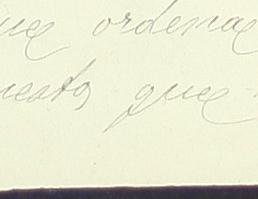 que ordenas
uesta que